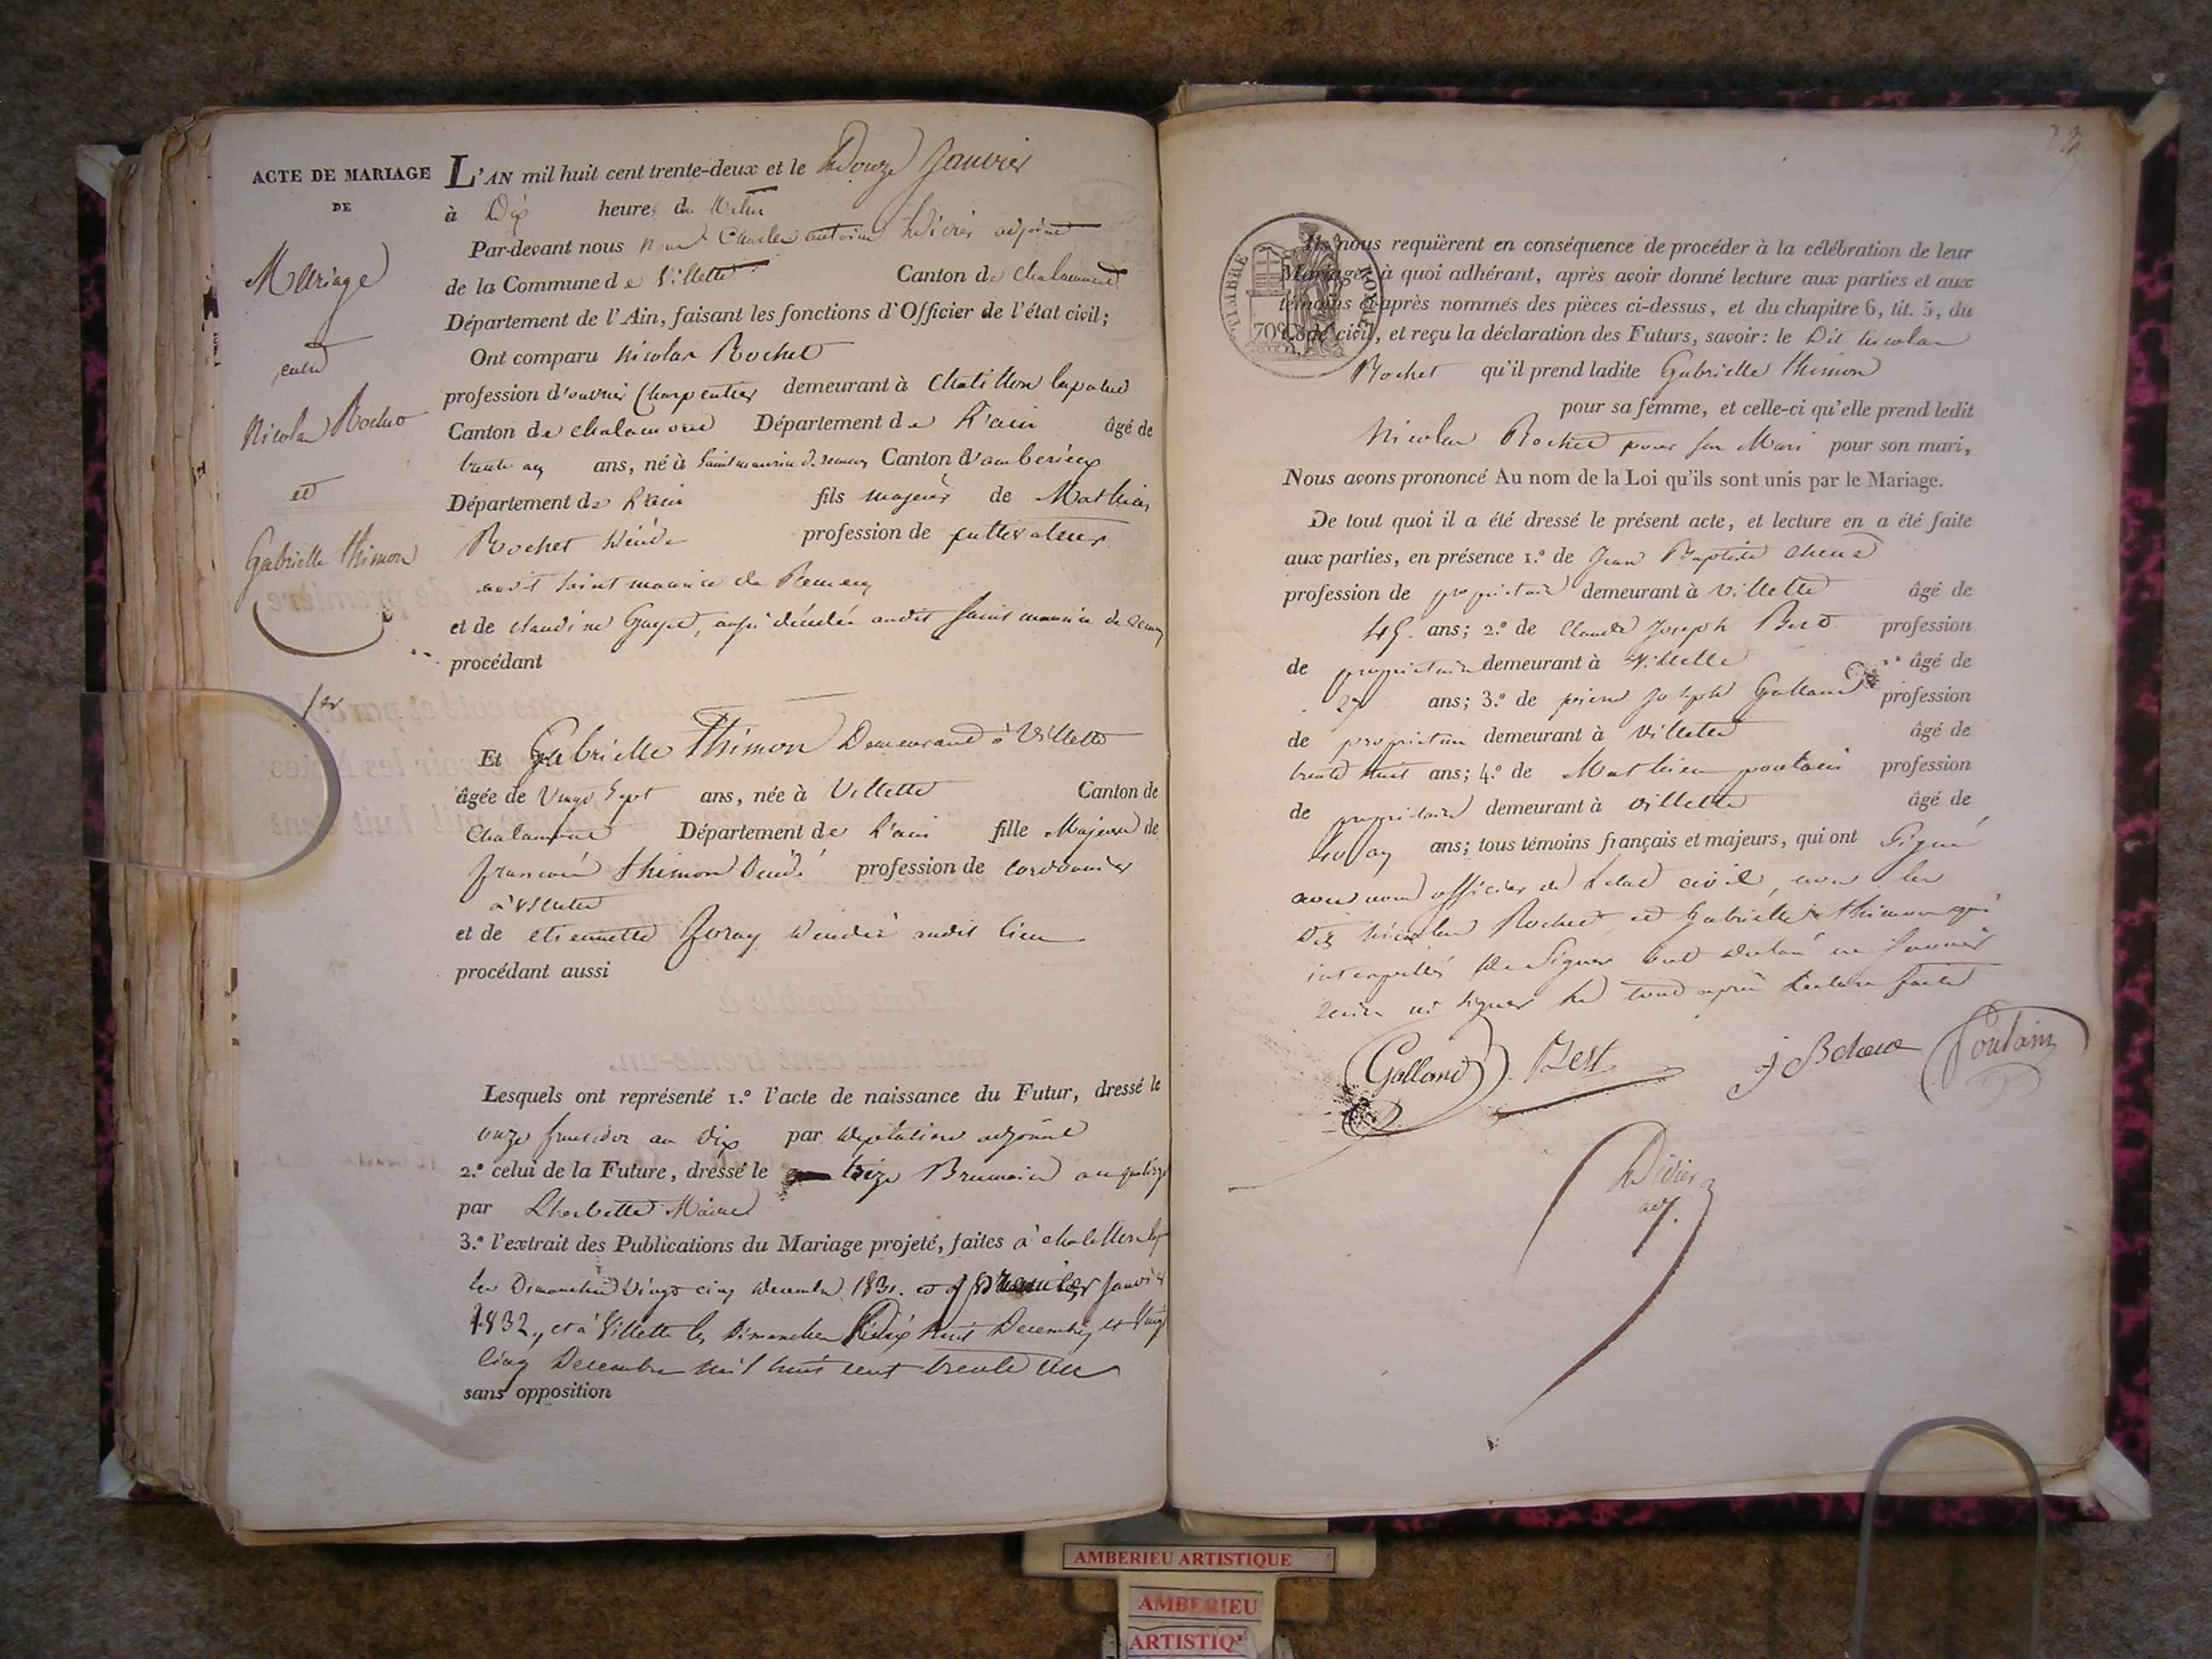 ACTE DE MARIAGE
DE
Mariage
entre
Nicolas Rochet
et
Gabrielle Thimon
1er
L'AN mil huit cent trente-deux et le Douze Janvier
à Dix heures du Matin
Par-devant nous Charles antoine Didier adjoint
de la Commune de Villette Canton de chalamont
Département de l'Ain, faisant les fonctions d'Officier de l'état civil;
Ont comparu Nicolas Rochet
profession d'ouvrier Charpentier demeurant à Chatillon lapalud
Canton de chalamont Département de L'ain âgé de
trente ans, né à Saint maurice de remens Canton d'amberieux
Département de L'ain fils majeur de Mathieu
Rochet décédé profession de cultivateur
audit Saint maurice de Remens
et de claudine, aussi décédée audit Saint maurice de
procédant
Et Gabrielle Thimon Demeurant à Villette
âgée de Vingt Sept ans, née à Villette Canton de
Chalamont Département de L'ain fille Majeure de
françois Thimon Décédé profession de cordonnier
à Villette
et de etiennette Joray décédée audit lieu
procédant aussi
Lesquels ont représenté 1.º l'acte de naissance du Futur, dressé le
onze fructidor an dix par adjoint
2.º celui de la Future, dressé le treize Brumaire an quatorze
par Maire
3.º l'extrait des Publications du Mariage projeté, faites à chatillon
les Dimanches Vingt cinq decembre 1831. et premier Janvier
1832, et à Villette les Dimanches Dix huit Decembre et Vingt
Cinq Decembre mil huit cent trente un
sans opposition
TIMBRE ROYAL
70
Ils nous requièrent en conséquence de procéder à la célébration de leur
Mariage; à quoi adhérant, après avoir donné lecture aux parties et aux
témoins ci-après nommés des pièces ci-dessus, et du chapitre 6, tit. 5, du
Code civil, et reçu la déclaration des Futurs, savoir: le Dit Nicolas
Rochet qu'il prend ladite Gabrielle Thimon
pour sa femme, et celle-ci qu'elle prend ledit
Nicolas Rochet pour son Mari pour son mari,
Nous avons prononcé Au nom de la Loi qu'ils sont unis par le Mariage.
De tout quoi il a été dressé le présent acte, et lecture en a été faite
aux parties, en présence 1.º de Jean Baptiste
profession de propriétaire demeurant à Villette âgé de
45. ans; 2.º de Claude Joseph profession
de propriétaire demeurant à Villette âgé de
27 ans; 3.º de pierre Joseph Galland profession
de propriétaire demeurant à Villette âgé de
trente huit ans; 4.º de Mathieu poulain profession
de propriétaire demeurant à villette âgé de
ans; tous témoins français et majeurs, qui ont Signé
avec nous officier de l'état civil, non les
Dits Nicolas Rochet et Gabrielle thimon qui
interpellés de Signer ont déclaré ne Savoir
ni signer le tout après Lecture faite
Golland Best Poulain
Didier
adj.
AMBERIEU ARTISTIQUE
AMBERIEU
ARTISTIQ